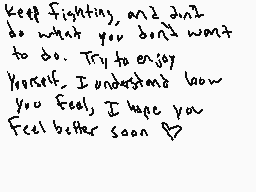 Keep fighting, and don't
do what you don't want
to do. Try to enjoy
yourself. I understand how
you feel, I hope you
feel better soon ♡